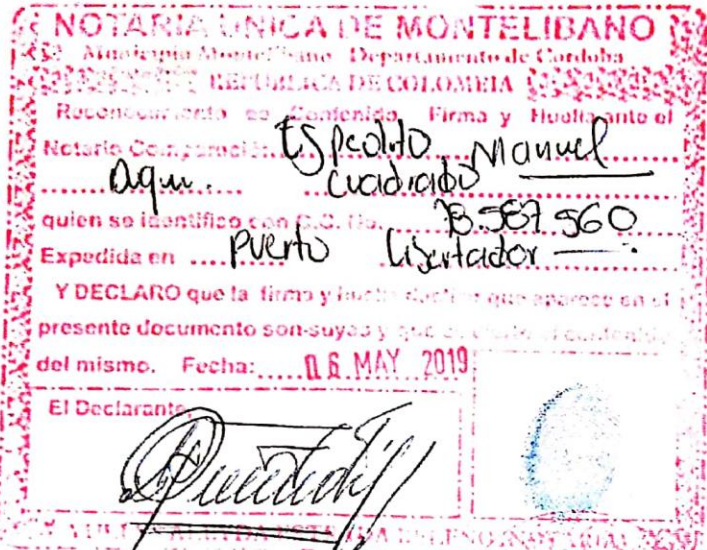 NOTARIA UNICA DE MONTELIBANO
Municipio Montelibano - Departamento de Cordoba
REPUBLICA DE COLOMBIA
Reconocimiento de Contenido, Firma y Huella ante el
Notario Compareció: Espedito Manuel
Cuadrado
quien se identifico con C.C. No. 78.587.560
Expedida en Puerto Libertador
Y DECLARO que la firma y huella que aparece en el
presente documento son suyas y que es cierto el contenido
del mismo. Fecha: 06 MAY 2019
El Declarante